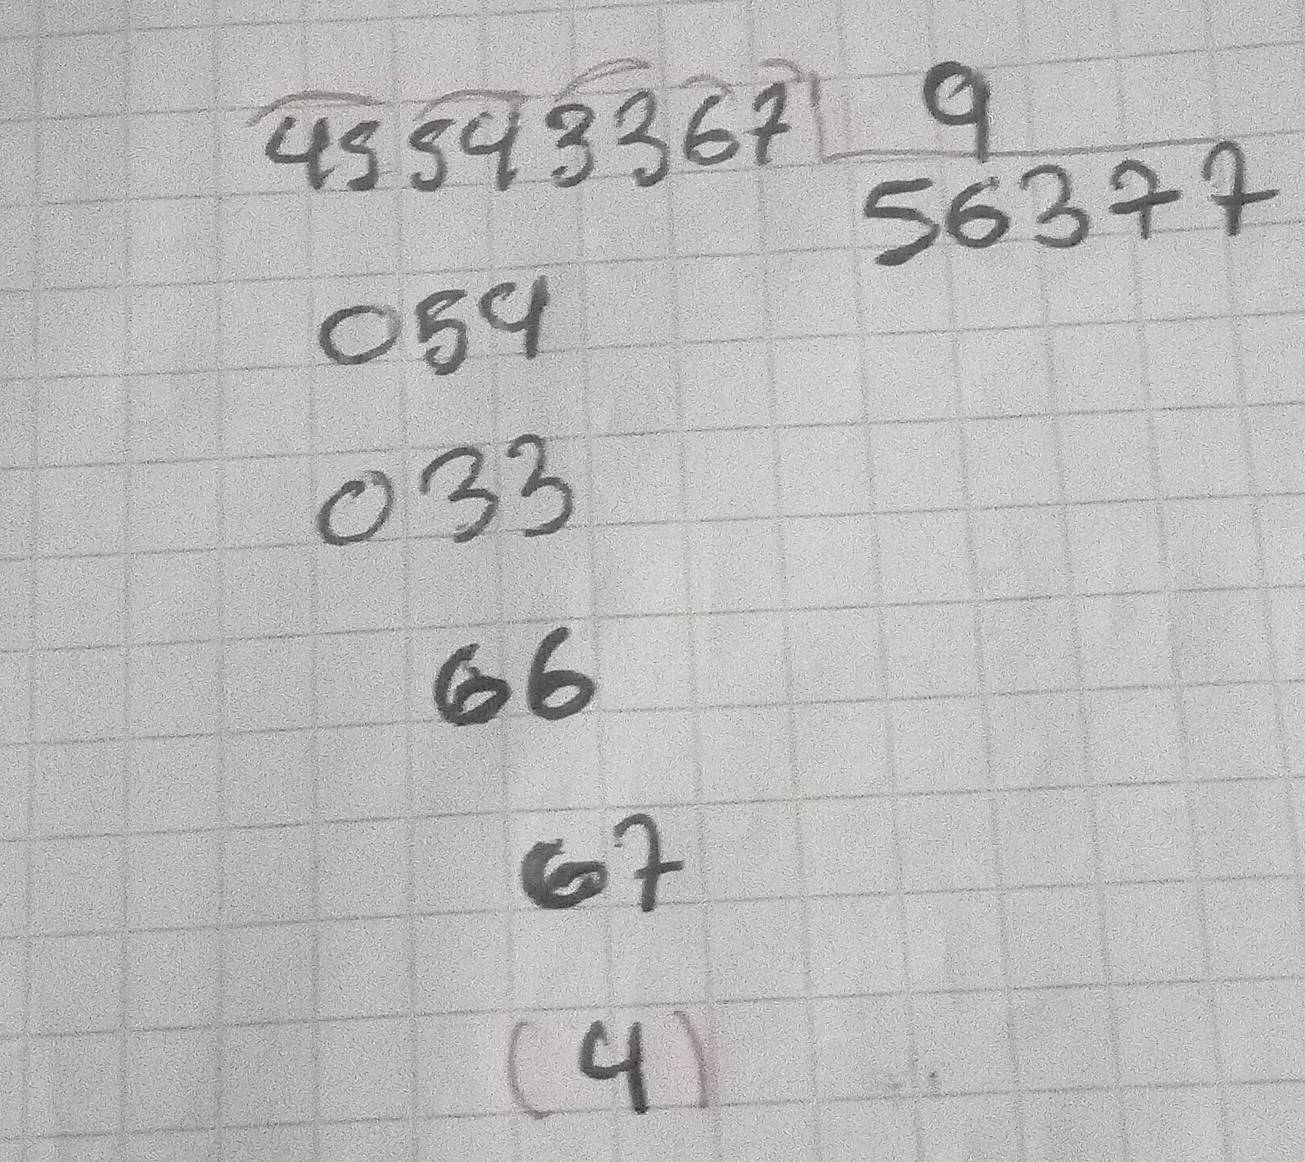 45543367 9
56377
054
033
66
67
(4)